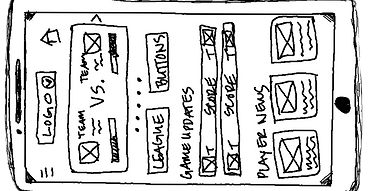 LOGO
TEAM VS. TEAM
LEAGUE BUTTONS
GAME UPDATES
T SCORE T
T SCORE T
PLAYER NEWS